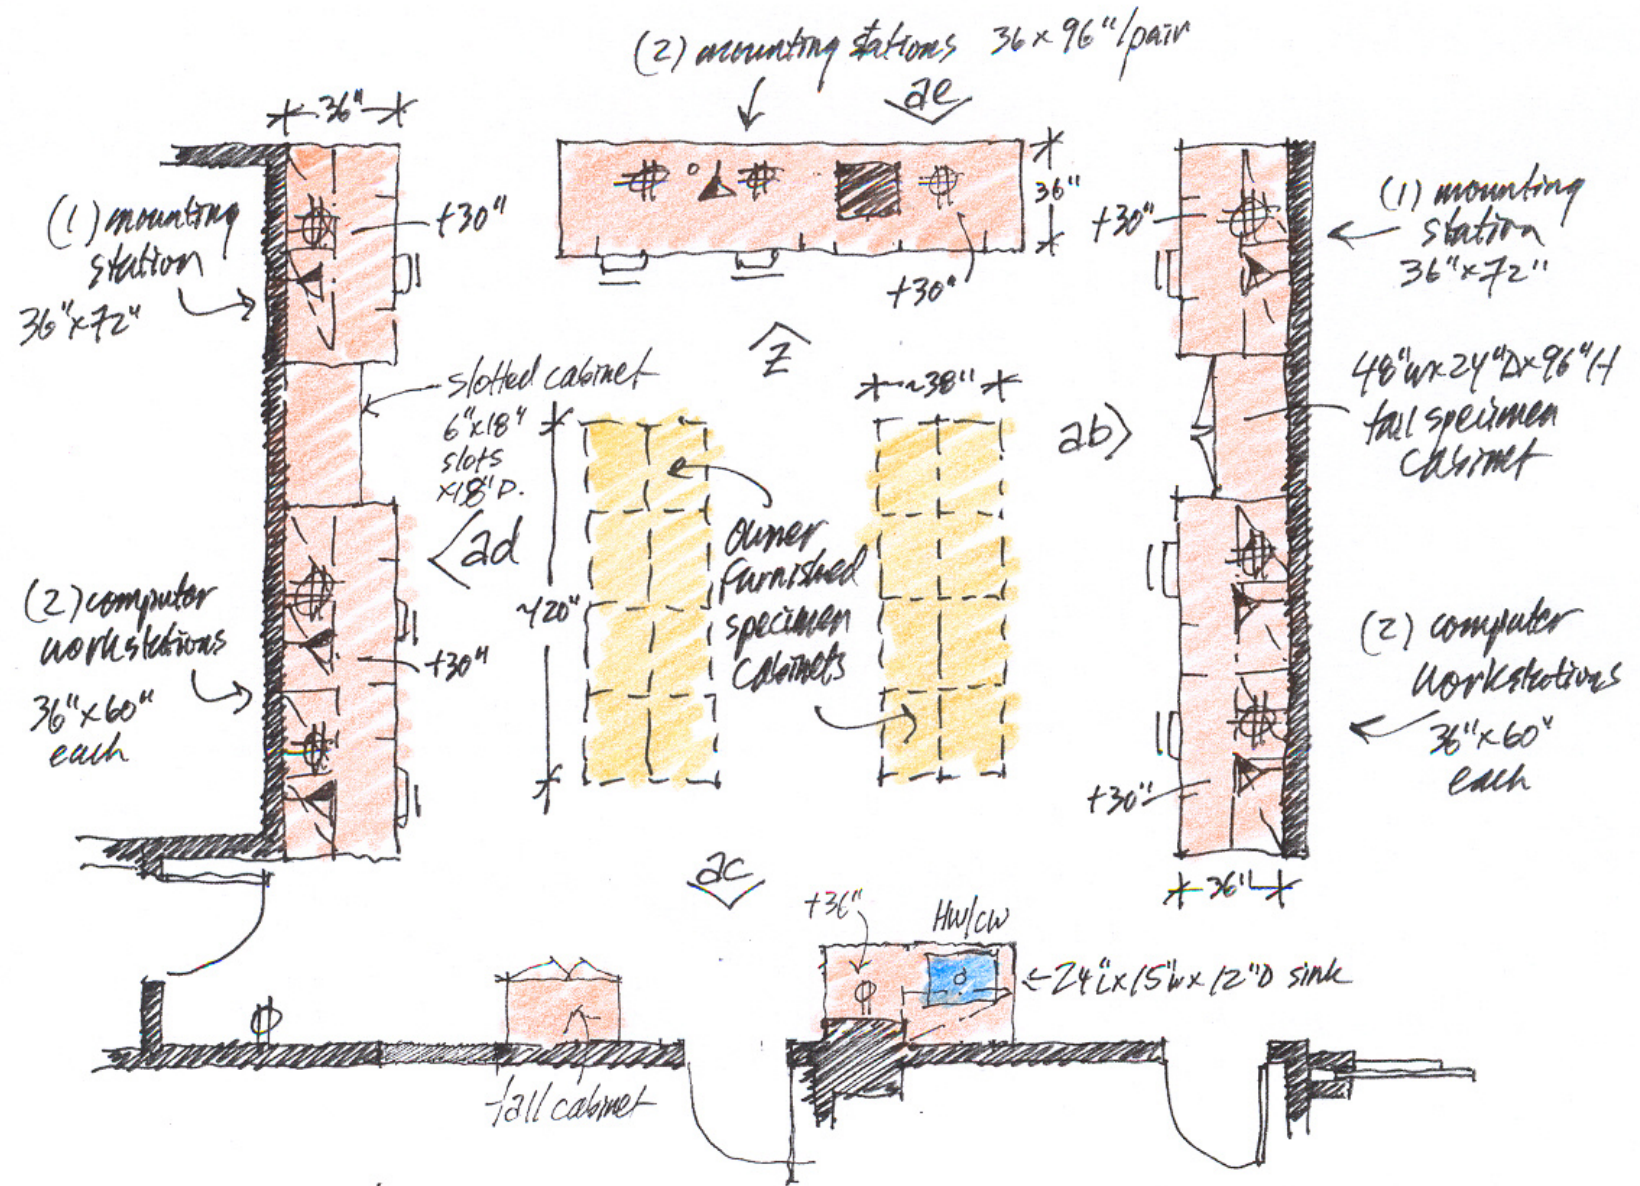 (2) mounting stations 36 x 96"/pair
ae
36"
36"
(1) mounting
station
36"x72"
+30"
+30"
+30"
(1) mounting
station
36"x72"
z
slotted cabinet
6"x18"
slots
x18"D.
~38"
ab
48"wx24"Dx96"H
tall specimen
cabinet
ad
~120"
owner
furnished
specimen
cabinets
(2) computer
workstations
36"x60"
each
+30"
(2) computer
workstations
36"x60"
each
+30"
36"
ac
+36"
HW/CW
24"Lx15"Wx12"D sink
tall cabinet